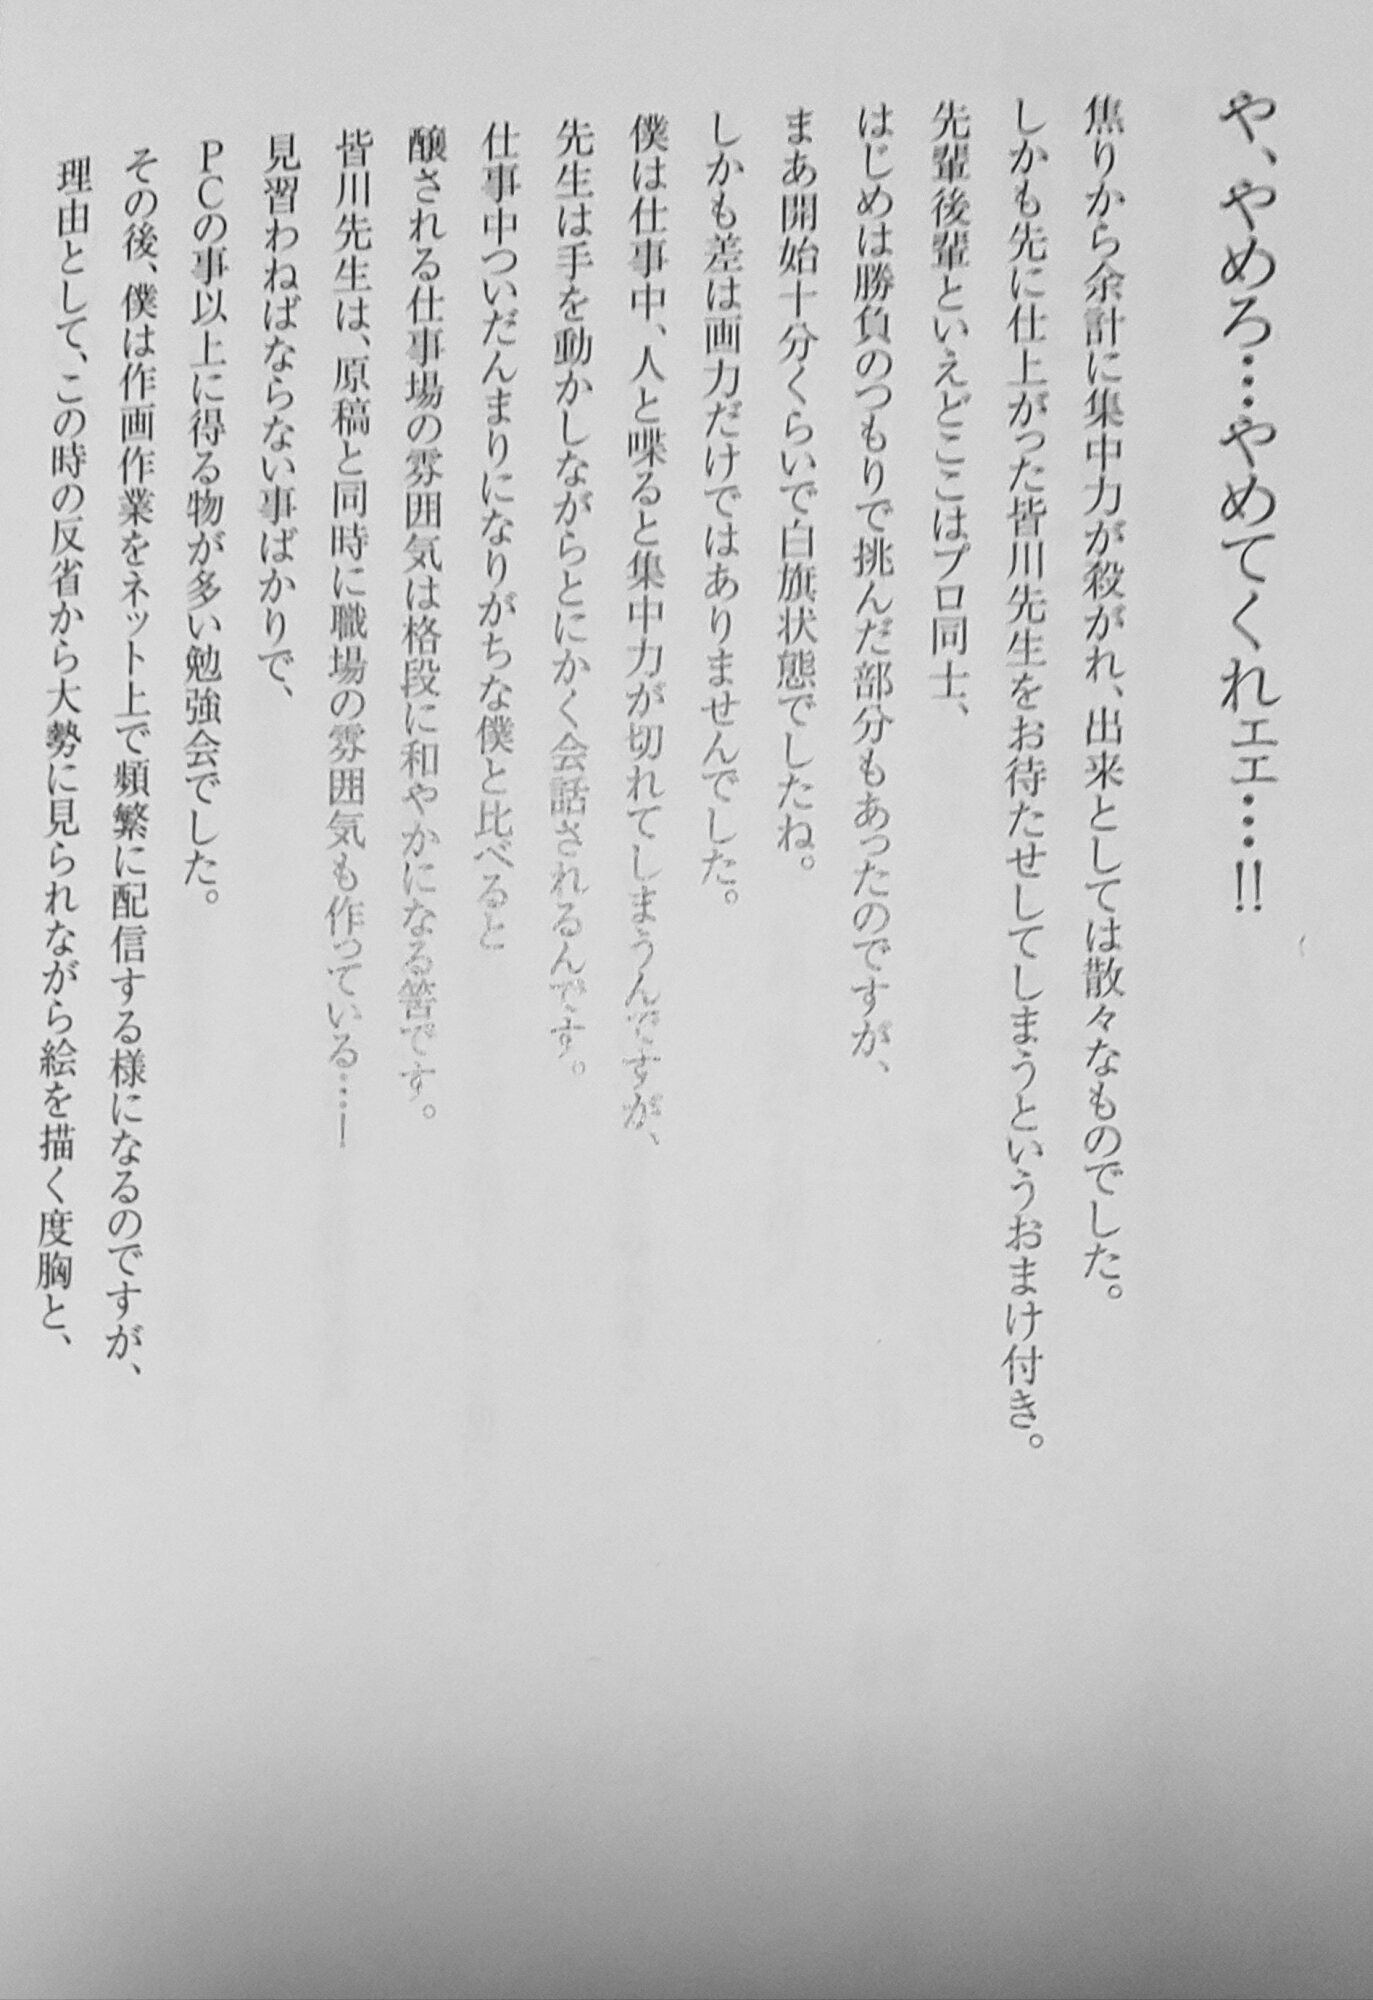 や、やめろ…やめてくれェェ…!!
焦りから余計に集中力が殺がれ、出来としては散々なものでした。
しかも先に仕上がった皆川先生をお待たせしてしまうというおまけ付き。
先輩後輩といえどここはプロ同士、
はじめは勝負のつもりで挑んだ部分もあったのですが、
まあ開始十分くらいで白旗状態でしたね。
しかも差は画力だけではありませんでした。
僕は仕事中、人と喋ると集中力が切れてしまうんですが、
先生は手を動かしながらとにかく会話されるんです。
仕事中ついだんまりになりがちな僕と比べると
醸される仕事場の雰囲気は格段に和やかになる筈です。
皆川先生は、原稿と同時に職場の雰囲気も作っている…！
見習わねばならない事ばかりで、
PCの事以上に得る物が多い勉強会でした。
その後、僕は作画作業をネット上で頻繁に配信する様になるのですが、
理由として、この時の反省から大勢に見られながら絵を描く度胸と、